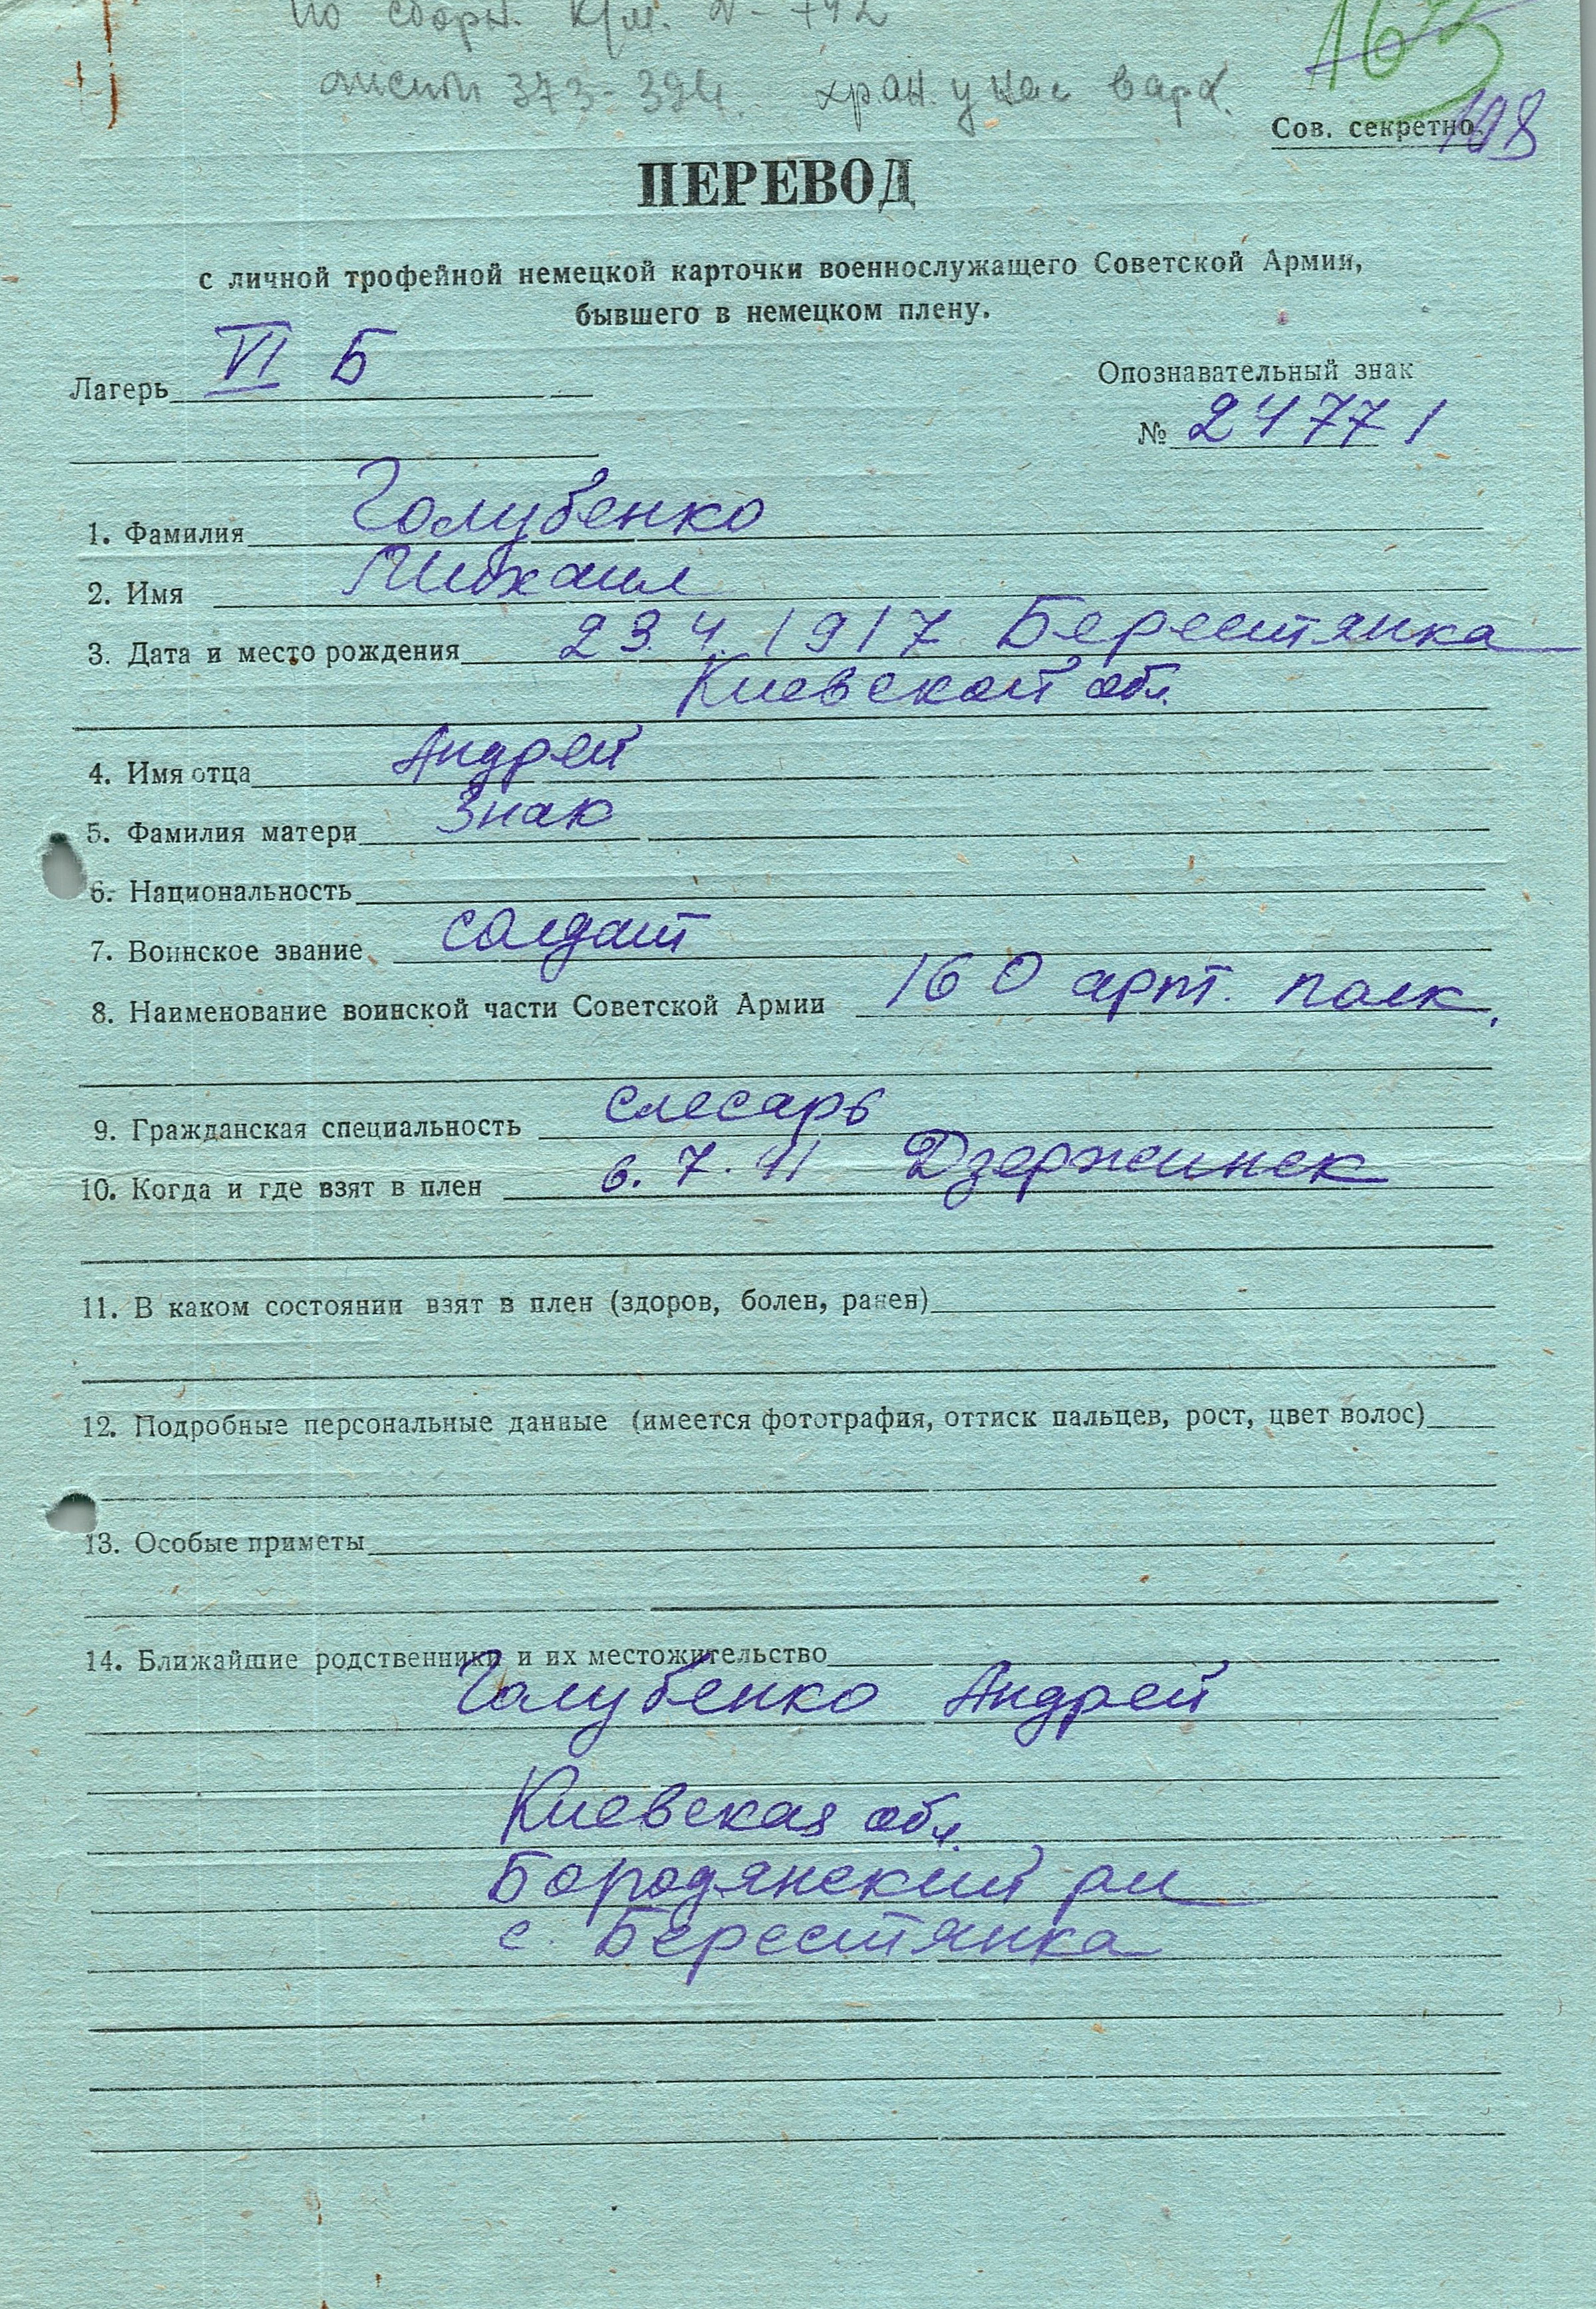 листы 373-394. хран. у нас в арх.
Сов. секретно.
108
ПЕРЕВОД
с личной трофейной немецкой карточки военнослужащего Советской Армии,
бывшего в немецком плену.
Лагерь VI Б
Опознавательный знак
№ 24771
1. Фамилия Голубенко
2. Имя Михаил
3. Дата и место рождения 23.4.1917 Берестянка
Киевской обл.
4. Имя отца Андрей
5. Фамилия матери Знак
6. Национальность
7. Воинское звание солдат
8. Наименование воинской части Советской Армии 160 арт. полк,
9. Гражданская специальность слесарь
10. Когда и где взят в плен 6.7.41 Дзержинск
11. В каком состоянии взят в плен (здоров, болен, ранен)
12. Подробные персональные данные (имеется фотография, оттиск пальцев, рост, цвет волос)
13. Особые приметы
14. Ближайшие родственники и их местожительство
Голубенко Андрей
Киевская обл.
Бородянский рн
с. Берестянка